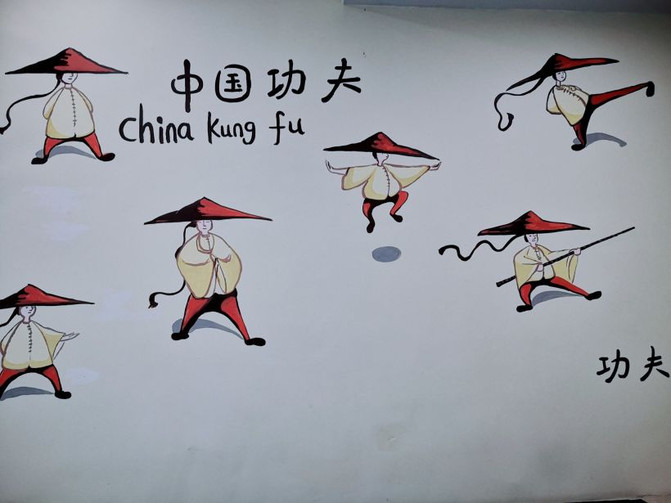 中国功夫
China kung fu
功夫